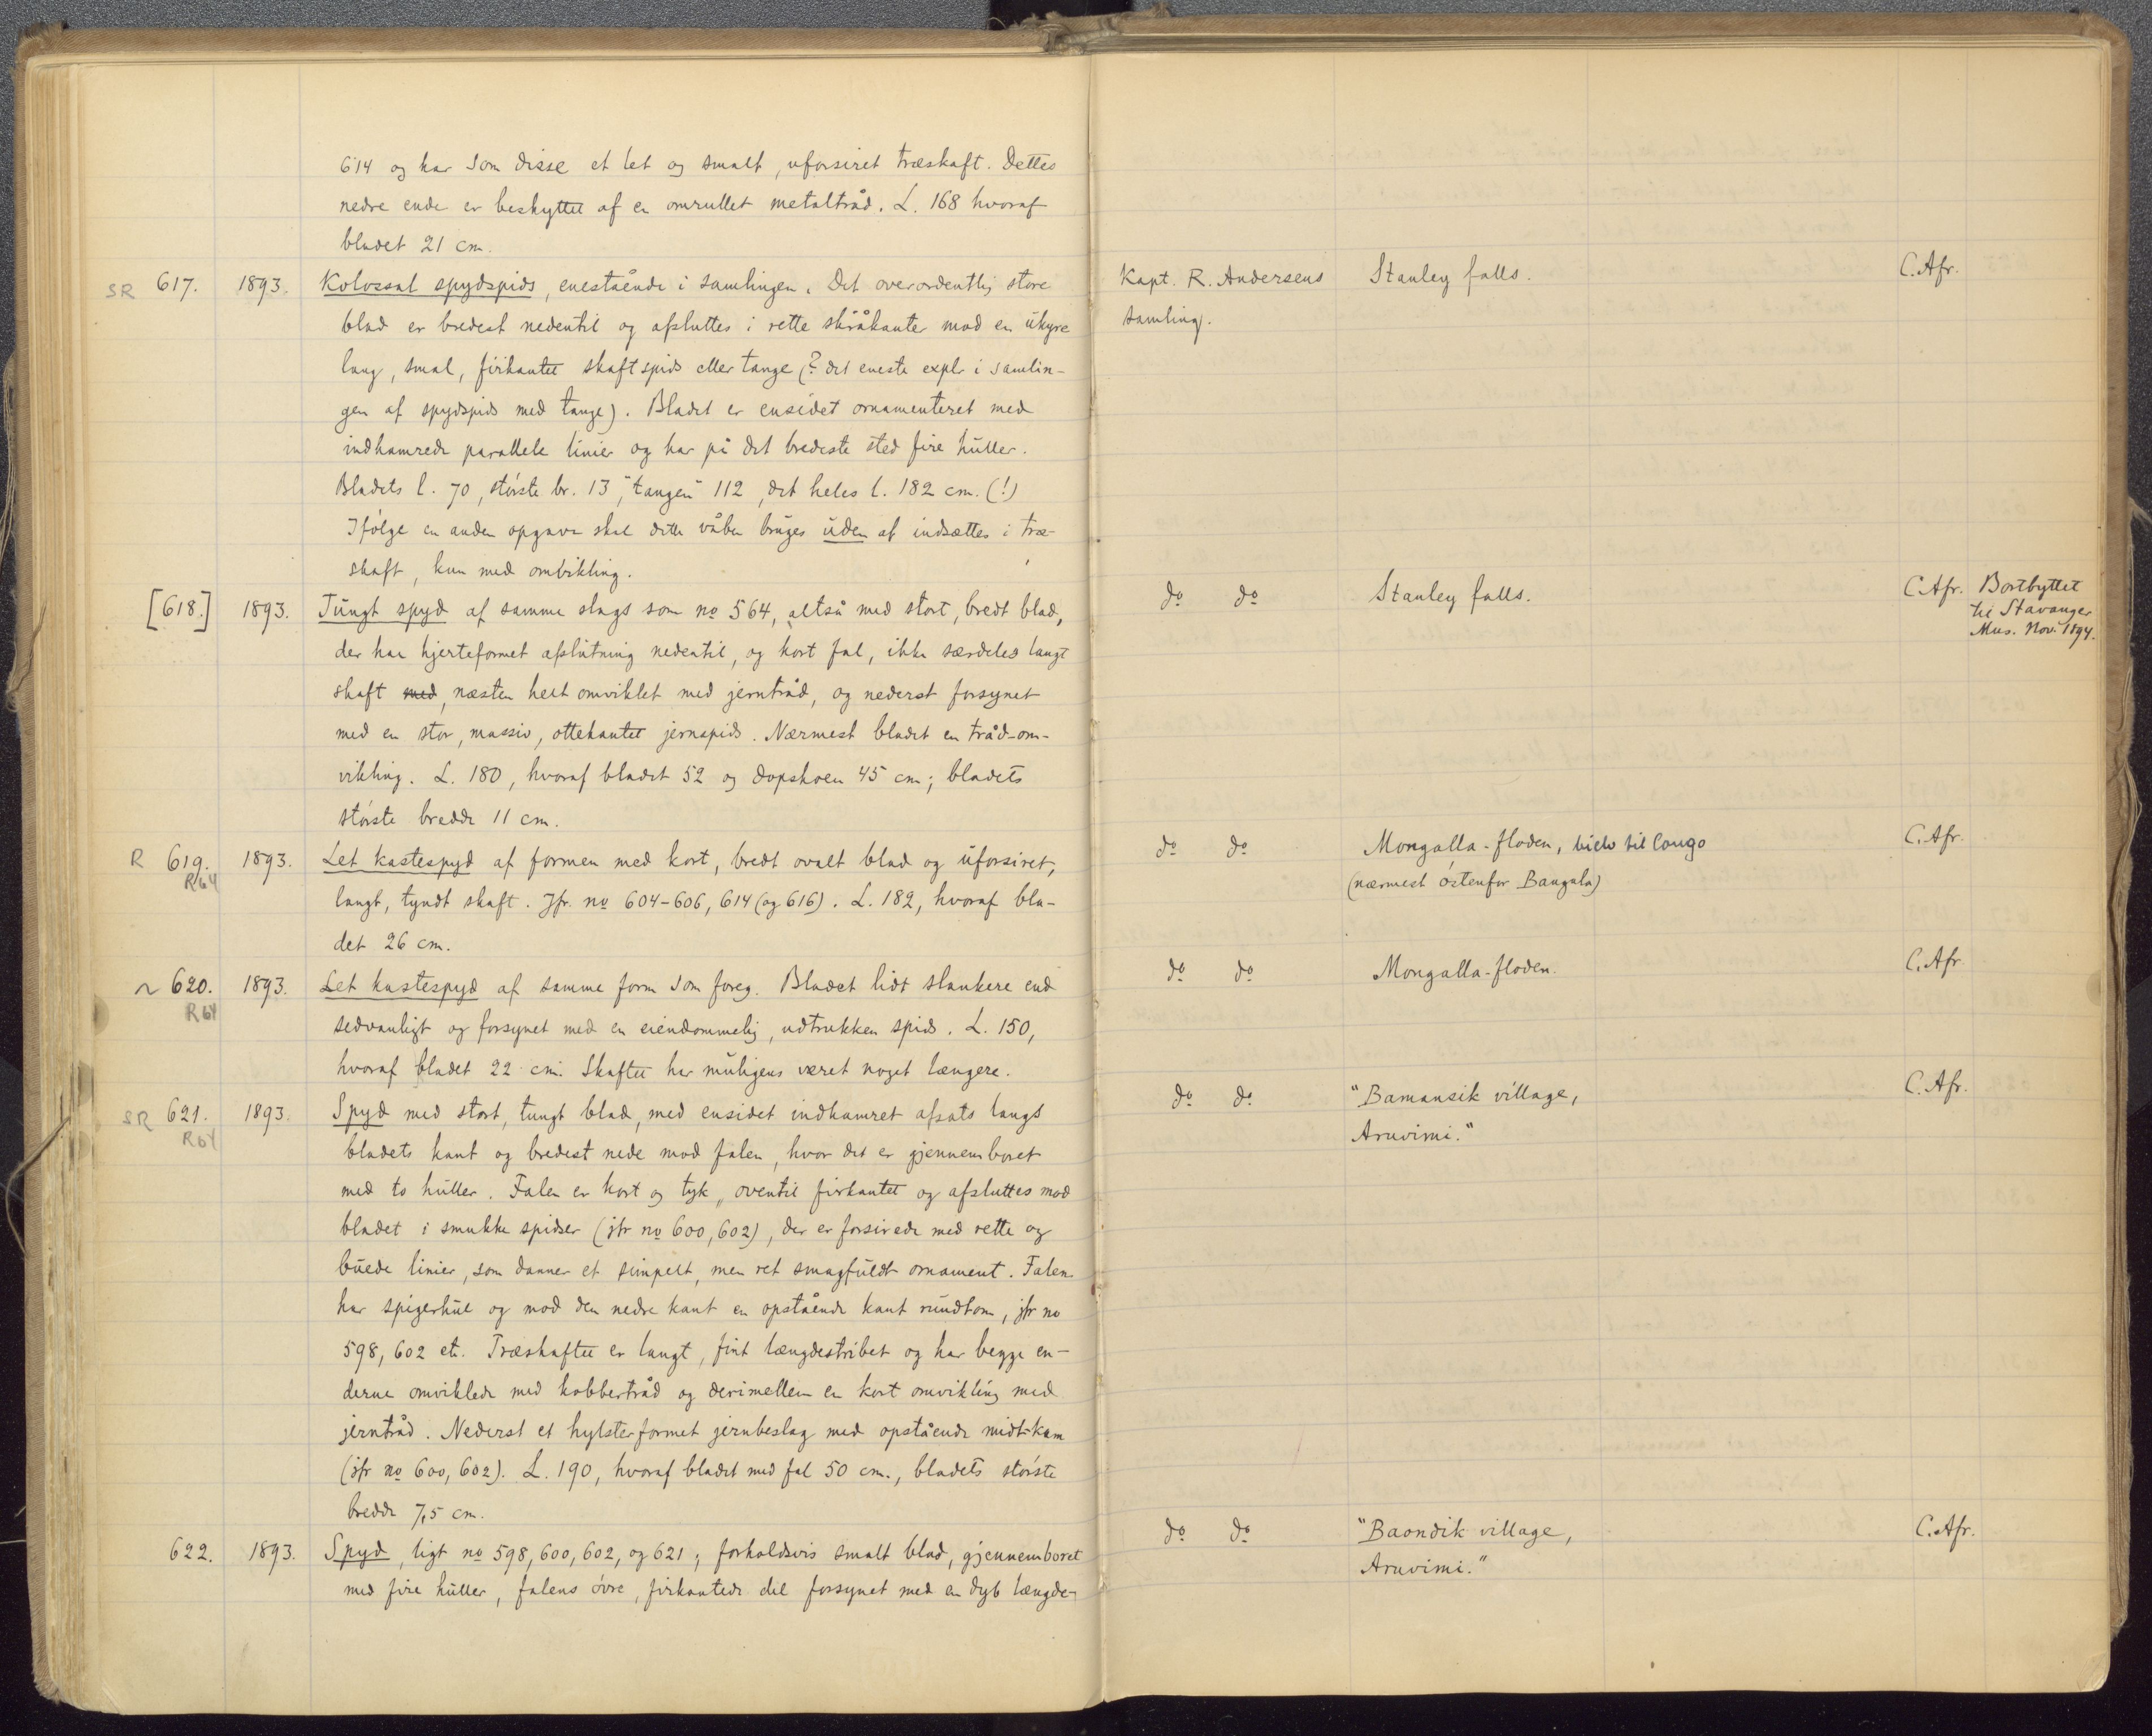 614 og har som disse et let og smalt, uforsiret træskaft. Dettes
nedre ende er beskyttet af en omrullet metaltråd. L. 168 hvoraf
bladet 21 cm.
SR 617. 1893. Kolossal spydspids, enestående i samlingen. Det overordentlig store
blad er bredest nedentil og afsluttes i rette skråkanter mod en uhyre
lang, smal, firkantet skaftspids eller tange (? det eneste expl. i samlin-
gen af spydspids med tange). Bladet er ensidet ornamenteret med
indhamrede parallele linier og har på det bredeste sted fire huller.
Bladets l. 70, största br. 13, "tangen" 112, det heles l. 182 cm. (!)
Ifølge en anden opgave skal dette våben bruges uden at indsættes i træ-
skaft, kun med omvikling.
Kapt. R. Andersens
samling.
Stanley falls.
C. Afr.
[618.] 1893. Tungt spyd af samme slags som no 564, altså med stort, bredt blad,
der har hjerteformet afslutning nedentil, og kort fal, ikke særdeles langt
skaft med, næsten helt omviklet med jerntråd, og nederst forsynet
med en stor, massiv, ottekantet jernspids. Nærmest bladet en tråd-om-
vikling. L. 180, hvoraf bladet 52 og dopskoen 45 cm; bladets
største bredde 11 cm.
do do Stanley falls.
C. Afr. Bortbyttet
til Stavanger
Mus. Nov. 1894.
R 619. 1893. Let kastespyd af formen med kort, bredt ovalt blad og uforsiret,
R64
langt, tyndt skaft. Jfr. no 604-606, 614 (og 616). L. 182, hvoraf bla-
det 26 cm.
do do Mongalla-floden, bielv til Congo
(nærmest østenfor Bangala)
C. Afr.
~ 620. 1893. Let kastespyd af samme form som foreg. Bladet lidt slankere end
R64
sedvanligt og forsynet med en eiendommelig, udtrukken spids. L. 150,
hvoraf bladet 22 cm. Skaftet har muligens været noget længere.
do do Mongalla-floden.
C. Afr.
SR 621. 1893. Spyd med stort, tungt blad, med ensidet indhamret afsats langs
R64
bladets kant og bredest nede mod falen, hvor det er gjennemboret
med to huller. Falen er kort og tyk, oventil firkantet og afsluttes mod
bladet i smukke spidser (jfr no 600, 602), der er forsirede med rette og
buede linier, som danner et simpelt, men ret smagfuldt ornament. Falen
har spigerhul og mod den nedre kant en opstående kant rundtom, jfr no
598, 602 etc. Træskaftet er langt, fint længdestribet og har begge en-
derne omviklede med kobbertråd og derimellem en kort omvikling med
jerntråd. Nederst et hylsterformet jernbeslag med opstående midtkam
(jfr no 600, 602). L. 190, hvoraf bladet med fal 50 cm., bladets største
bredde 7,5 cm.
do do "Bamansik village,
Aruvimi."
C. Afr.
622. 1893. Spyd, ligt no 598, 600, 602, og 621; forholdsvis smalt blad, gjennemboret
med fire huller, falens øvre, firkantede del forsynet med en dyb længde-
do do "Baondik village,
Aruvimi."
C. Afr.